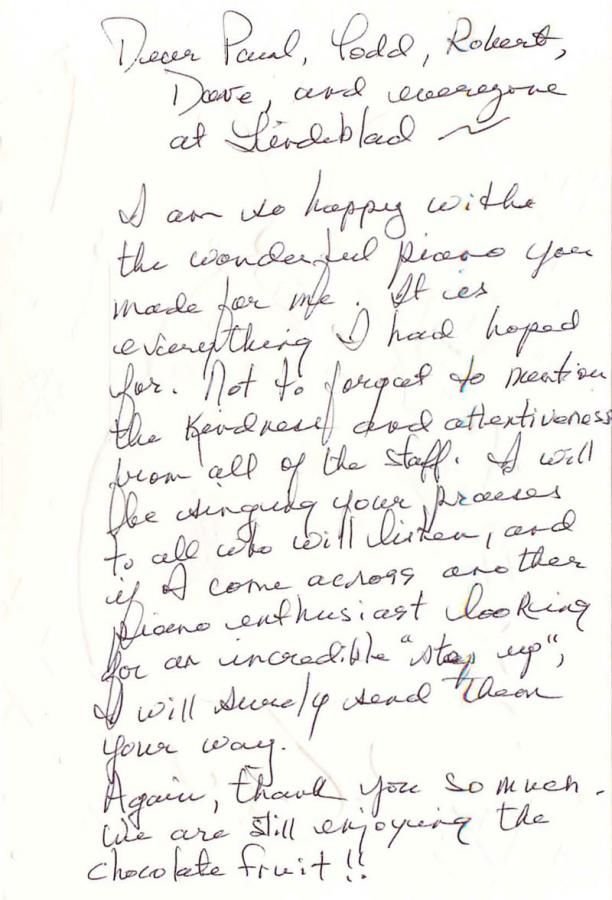 Dear Paul, Todd, Robert,
Dave, and everyone
at Lindeblad ~
I am so happy with
the wonderful piano you
made for me. It is
everything I had hoped
for. Not to forget to mention
the kindness and attentiveness
from all of the staff. I will
be singing your praises
to all who will listen, and
if I come across another
piano enthusiast looking
for an incredible "step up",
I will surely send them
your way.
Again, thank you so much.
We are still enjoying the
chocolate fruit!!